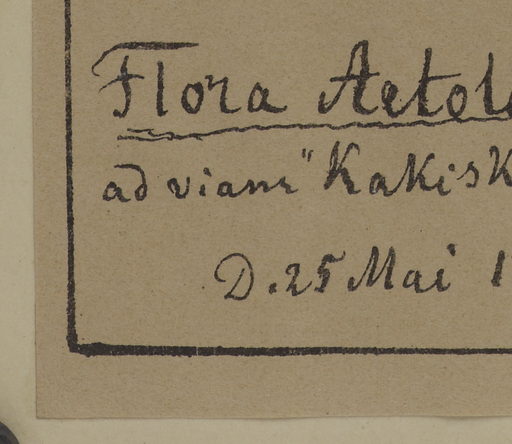 Flora Aetol
ad viam "Kakisk
D. 25 Mai 1